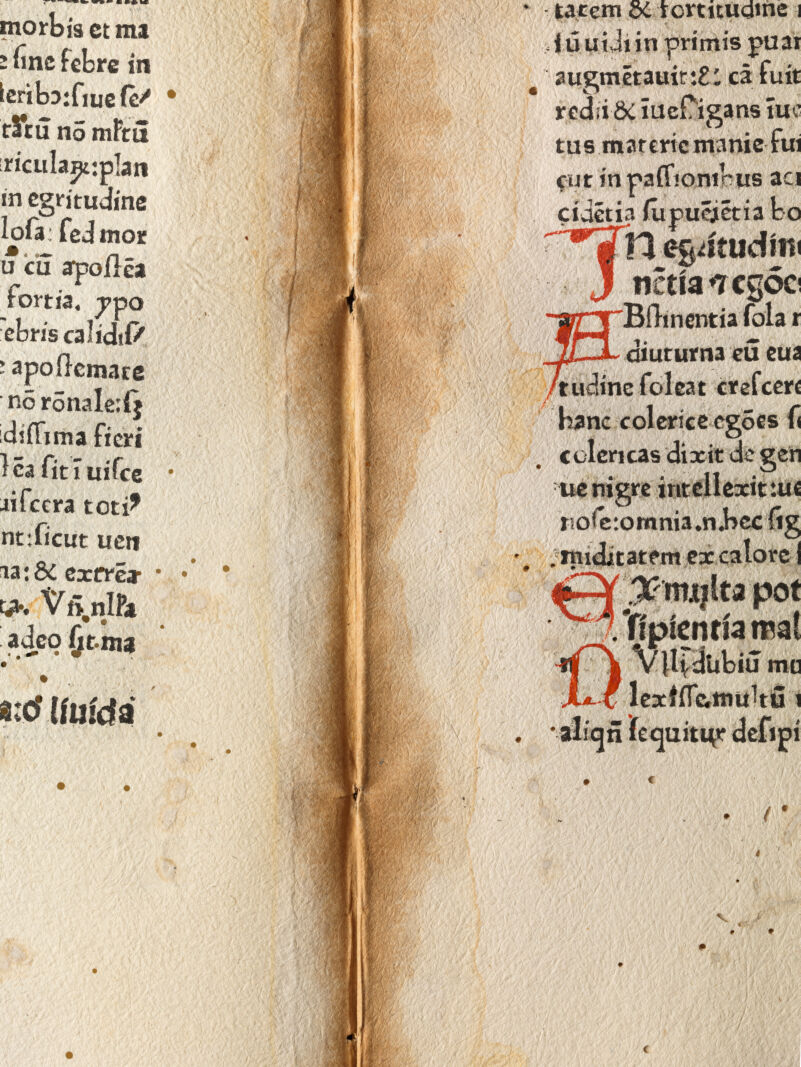 morbis et ma
ſine febre in
ſiue ſe/
tātū nō mltū
:plan
in egritudine
loſa: ſed mor
ū cū apoſtēa
fortia. ypo
ebris calidiſ/
apoſtemate
nō rōnale:ſꝫ
idiſſima fieri
fit ī uiſce
uiſcera toti⁹
nt:ſicut uen
na: & extrēa
adeo ſit ma
liuida
tatem & fortitudine
lū uidi in primis
augmētauit:&: cā fuit
redii &
tus materie manie fui
cut in paſſionibus aci
cidētia
IN egritudin
nētia ⁊ egōe
ABſtinentia ſola
diuturna eū eua
tudine ſoleat creſcere
hanc colerice egōes
colericas dixit de gen
ue nigre intellexit:ue
noſe:omnia.n.hec ſig
miditatem ex calore
EX multa pot
ſipientia mal
NVlli dubiū mu
lexiſſe.multū
aliqñ ſequitur deſipi